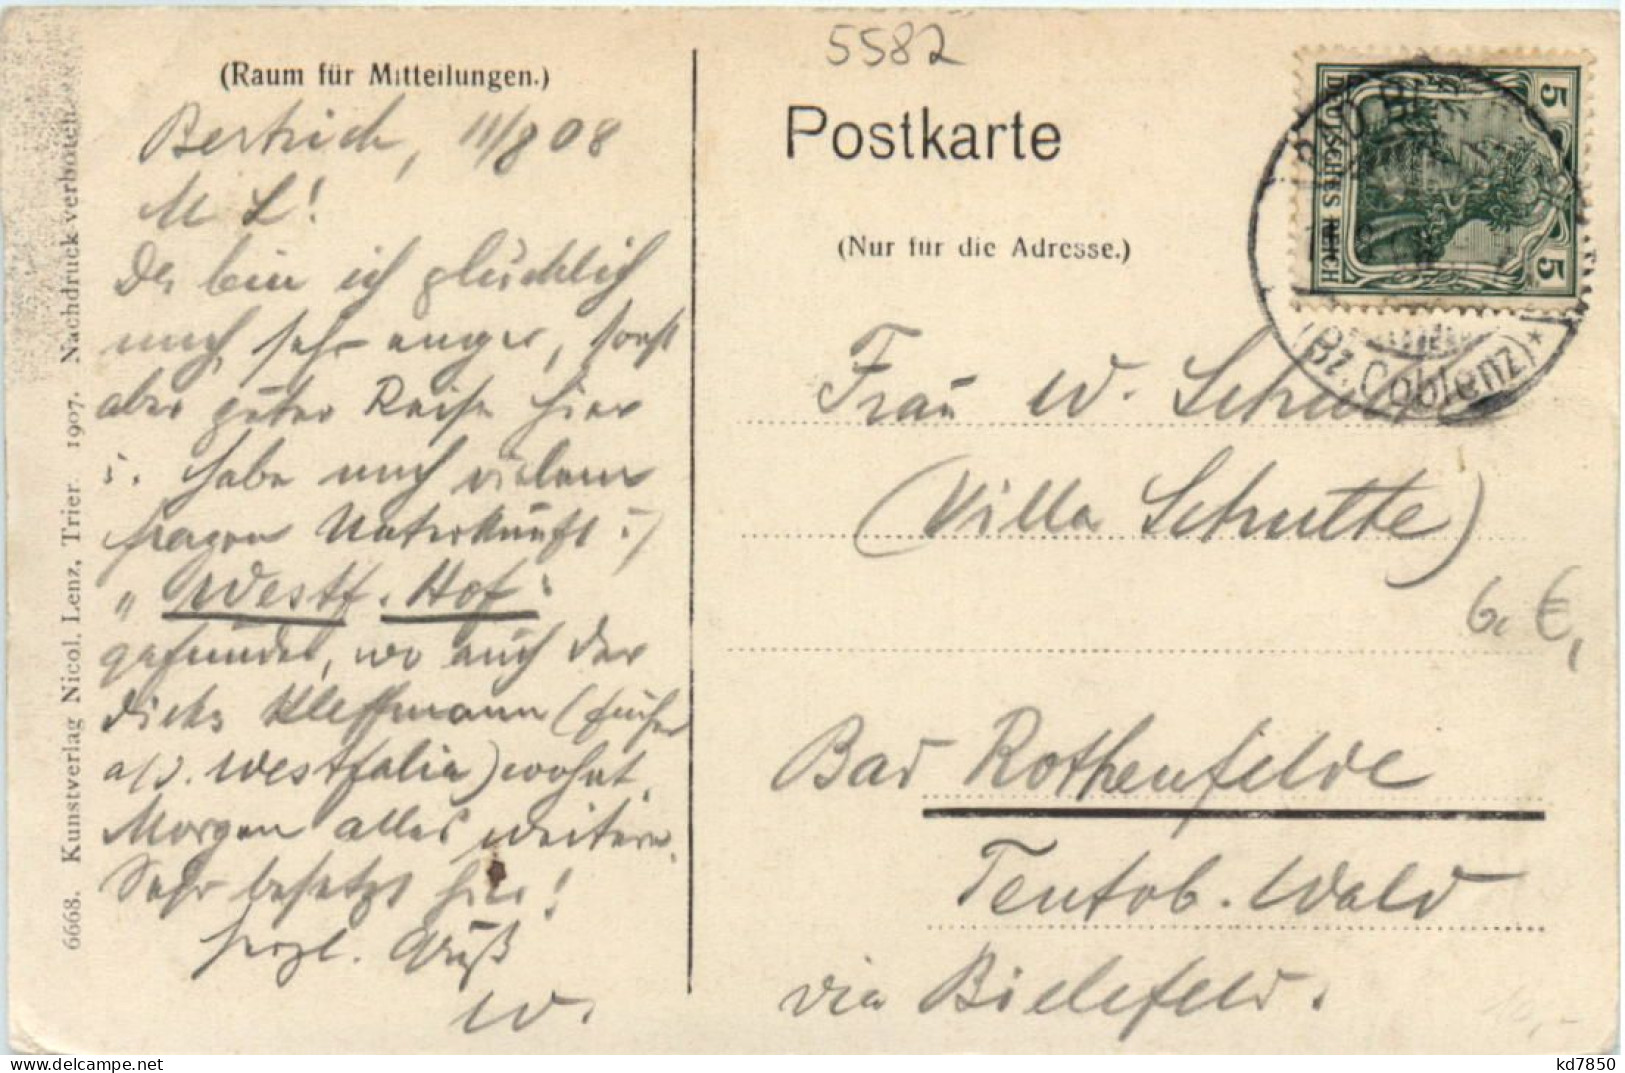 5582
(Raum für Mitteilungen.)
Bertrich, 11/8 08
M L!
Da bin ich glücklich
nach sehr anger, sonst
aber guter Reise hier
u. habe nach vielem
fragen Unterkunft i/
„Westf. Hof"
gefunden, wo auch der
dicke Kleffmann (früher
a/d. Westfalia) wohnt.
Morgen alles weitere.
Sehr besetzt hier!
herzl. Gruß
W.
6668. Kunstverlag Nicol. Lenz, Trier. 1907. Nachdruck verboten.
Postkarte
(Nur für die Adresse.)
Frau W. Schulte
(Villa Schulte)
Bad Rothenfelde
Teutob. Wald
via Bielefeld.
DEUTSCHES REICH
5 5
(Bz. Coblenz)*
6. €,
10,-
kd7850